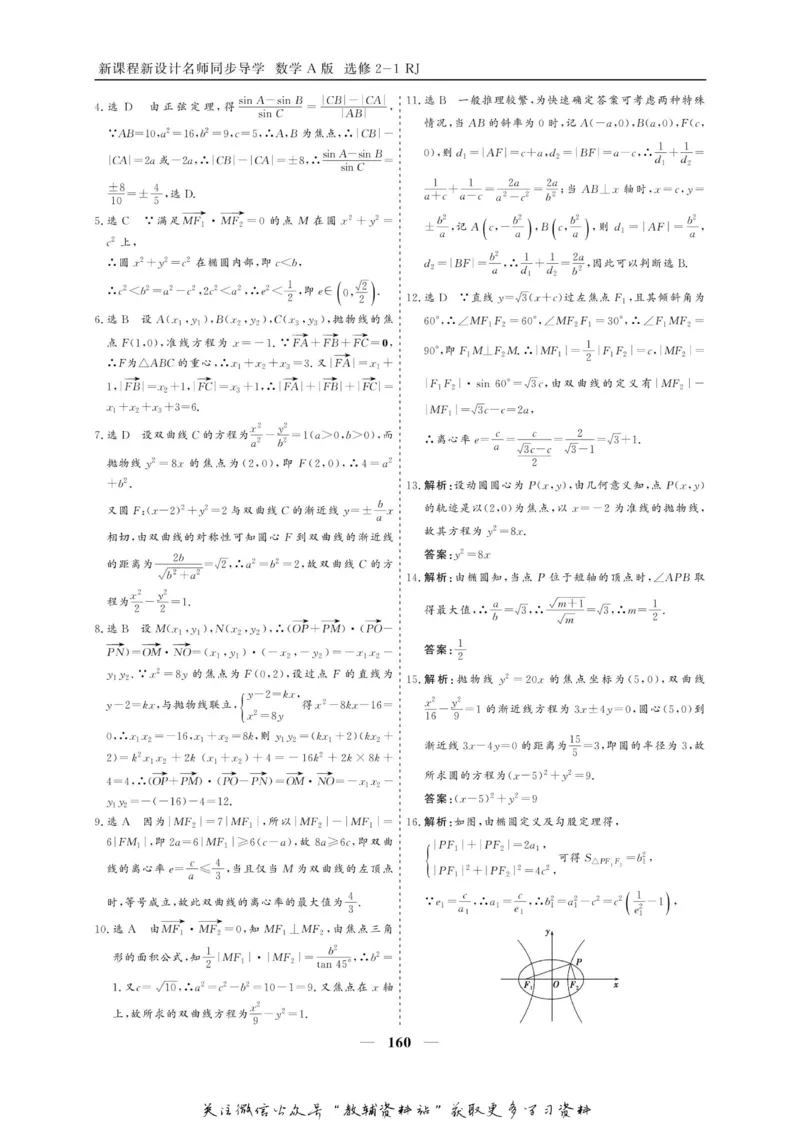 新课程新设计名师同步导学 数学 A 版 选修 2-1 RJ
4.选 D 由正弦定理,得 (sin A-sin B)/(sin C) = (|CB|-|CA|)/|AB|,
∵AB=10,a²=16,b²=9,c=5,∴A,B为焦点,∴|CB|-
|CA|=2a或-2a,∴|CB|-|CA|=±8,∴(sin A-sin B)/(sin C)=
±8/10=±4/5,选 D.
5.选 C ∵满足→MF₁·→MF₂=0 的点 M 在圆 x²+y²=
c² 上,
∴圆 x²+y²=c² 在椭圆内部,即 c<b,
∴c²<b²=a²-c²,2c²<a²,∴e²<1/2,即 e∈(0,√2/2).
6.选 B 设 A(x₁,y₁),B(x₂,y₂),C(x₃,y₃),抛物线的焦
点 F(1,0),准线方程为 x=-1.∵→FA+→FB+→FC=0,
∴F为△ABC的重心,∴x₁+x₂+x₃=3.又|→FA|=x₁+
1,|→FB|=x₂+1,|→FC|=x₃+1,∴|→FA|+|→FB|+|→FC|=
x₁+x₂+x₃+3=6.
7.选 D 设双曲线 C 的方程为 x²/a²-y²/b²=1(a>0,b>0),而
抛物线 y²=8x 的焦点为(2,0),即 F(2,0),∴4=a²
+b².
又圆 F:(x-2)²+y²=2 与双曲线 C 的渐近线 y=±(b/a)x
相切,由双曲线的对称性可知圆心 F 到双曲线的渐近线
的距离为 2b/√(b²+a²)=√2,∴a²=b²=2,故双曲线 C 的方
程为 x²/2-y²/2=1.
8.选 B 设 M(x₁,y₁),N(x₂,y₂),∴(→OP+→PM)·(→PO-
→PN)=→OM·→NO=(x₁,y₁)·(-x₂,-y₂)=-x₁x₂-
y₁y₂.∵x²=8y 的焦点为 F(0,2),设过点 F 的直线为
y-2=kx,与抛物线联立,{y-2=kx, x²=8y 得 x²-8kx-16=
0,∴x₁x₂=-16,x₁+x₂=8k,则 y₁y₂=(kx₁+2)(kx₂+
2)=k²x₁x₂+2k(x₁+x₂)+4=-16k²+2k×8k+
4=4,∴(→OP+→PM)·(→PO-→PN)=→OM·→NO=-x₁x₂-
y₁y₂=-(-16)-4=12.
9.选 A 因为|MF₂|=7|MF₁|,所以|MF₂|-|MF₁|=
6|FM₁|,即 2a=6|MF₁|≥6(c-a),故 8a≥6c,即双曲
线的离心率 e=c/a≤4/3,当且仅当 M 为双曲线的左顶点
时,等号成立,故此双曲线的离心率的最大值为 4/3.
10.选 A 由→MF₁·→MF₂=0,知 MF₁⊥MF₂,由焦点三角
形的面积公式,知 1/2|MF₁|·|MF₂|=b²/tan 45°,∴b²=
1.又c=√10,∴a²=c²-b²=10-1=9.又焦点在 x 轴
上,故所求的双曲线方程为 x²/9-y²=1.
11.选 B 一般推理较繁,为快速确定答案可考虑两种特殊
情况,当 AB 的斜率为 0 时,记 A(-a,0),B(a,0),F(c,
0),则 d₁=|AF|=c+a,d₂=|BF|=a-c,∴1/d₁+1/d₂=
1/(a+c)+1/(a-c)=2a/(a²-c²)=2a/b²;当 AB⊥x 轴时,x=c,y=
±b²/a,记 A(c,-b²/a),B(c,b²/a),则 d₁=|AF|=b²/a,
d₂=|BF|=b²/a,∴1/d₁+1/d₂=2a/b²,因此可以判断选 B.
12.选 D ∵直线 y=√3(x+c)过左焦点 F₁,且其倾斜角为
60°,∴∠MF₁F₂=60°,∠MF₂F₁=30°,∴∠F₁MF₂=
90°,即 F₁M⊥F₂M.∴|MF₁|=1/2|F₁F₂|=c,|MF₂|=
|F₁F₂|·sin 60°=√3c,由双曲线的定义有|MF₂|-
|MF₁|=√3c-c=2a,
∴离心率 e=c/a=c/((√3c-c)/2)=2/(√3-1)=√3+1.
13.解析:设动圆圆心为 P(x,y),由几何意义知,点 P(x,y)
的轨迹是以(2,0)为焦点,以 x=-2 为准线的抛物线,
故其方程为 y²=8x.
答案:y²=8x
14.解析:由椭圆知,当点 P 位于短轴的顶点时,∠APB 取
得最大值,∴a/b=√3,∴√(m+1)/√m=√3,∴m=1/2.
答案:1/2
15.解析:抛物线 y²=20x 的焦点坐标为(5,0),双曲线
x²/16-y²/9=1 的渐近线方程为 3x±4y=0,圆心(5,0)到
渐近线 3x-4y=0 的距离为 15/5=3,即圆的半径为 3,故
所求圆的方程为(x-5)²+y²=9.
答案:(x-5)²+y²=9
16.解析:如图,由椭圆定义及勾股定理得,
{|PF₁|+|PF₂|=2a₁, |PF₁|²+|PF₂|²=4c², 可得 S△PF₁F₂=b₁²,
∵e₁=c/a₁,∴a₁=c/e₁,∴b₁²=a₁²-c²=c²(1/e₁²-1),
y
P
F₁ O F₂ x
— 160 —
关注微信公众号“教辅资料站”获取更多学习资料